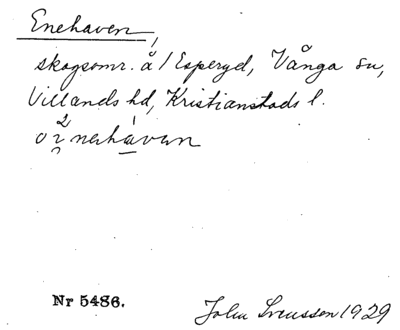 Enehaven,
skogsomr. å 1 Esperyd, Vånga sn,
Villands hd, Kristianstads l.
Nr 5486.
John Svensson 1929